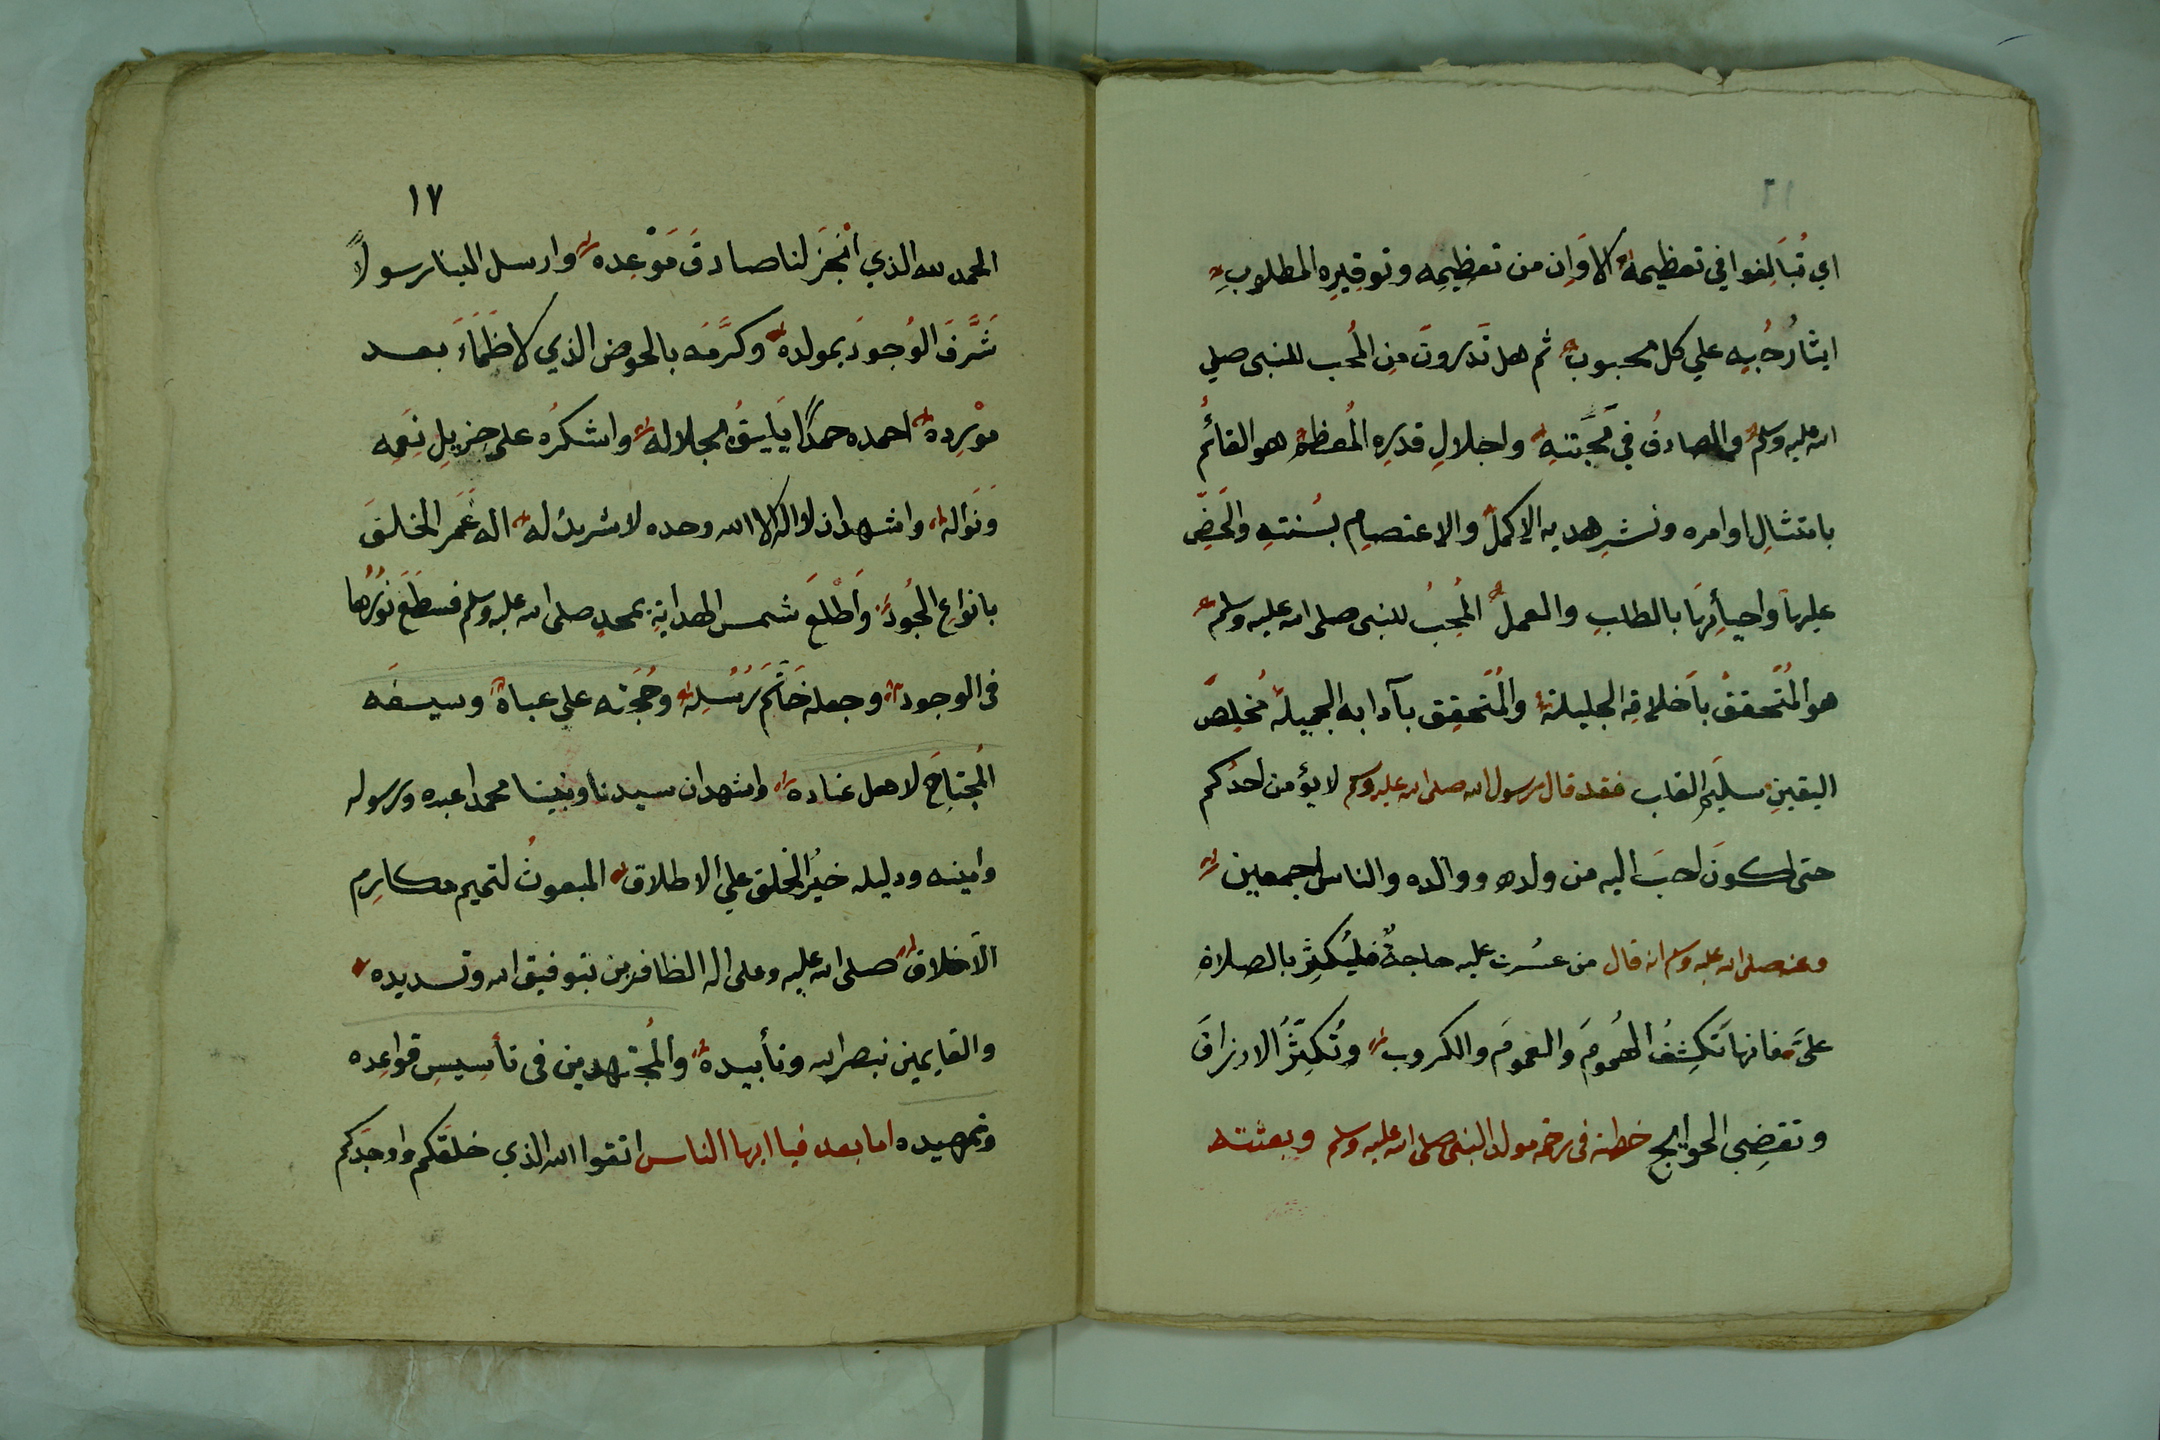 اي تُبَالِغوا في تعظيمه الا وَاِن من تعظيمِه وتوقيرِه المطلوبِ
ايثارُ حُبِّه علي كل محبوب ثم هل تَدرونَ مَنِ المُحب للنبى صلي
الله عليه وسلم والصادقُ في مَحَبَّتِهِ واجلالِ قدرِه المُعظم هو القائمُ
بامتثالِ اوامره ونشرِ هديه الاكمل والاعتصامِ بسُنتهِ والحَضِّ
عليها واحيائِها بالطلبِ والعمل المُحِبُ للنبى صلى الله عليه وسلم
هو المُتَحققُ باَخلاقِه الجليلة والمُتَحقِق بآدابه الجميلة مُخلِصَ
اليقينِ سليَم القلب فقد قال رسول الله صلى الله عليه وسلم لا يؤمن احدُكم
حتى اكونَ احبَ اليه من ولده ووالده والناس اجمعين
وعنه صلى الله عليه وسلم انه قال من عسُرت عليه حاجةٌ فليُكثِر بالصلاةِ
علىَّ فانها تَكشِفُ الهُمومَ والغمومَ والكروب وتُكثِّرُ الارزاقَ
وتقضِي الحوايج خطبة في مولد النبى صلى الله عليه وسلم وبعثته
١٧
الحمد لله الذي اَنْجَزَ لنا صادقَ مَوْعِده وارسل الينا رسولاً
شَرَّفَ الوُجودَ بمولده وكرَّمَه بالحوض الذي لا ظَمَاءَ بعد
موْرِدهِ احمده حمدًا يَليقُ بجلاله واشكرُه على جزيلِ نِعَمِه
وَنَوَاله واشهد ان لا اله الا الله وحده لا شريك له اله غَمَر الخلقَ
بانواعِ الجُود وَاَطْلَعَ شمس الهدايةِ بمحمدٍ صلى الله عليه وسلم فسَطَعَ نوُرُها
فى الوجود وجعله خَاتَمَ رُسُلِه وحُجَته على عباده وسيفَه
المُجتاحَ لاهل عناده واشهد ان سيدنا ونبينا محمدا عبده ورسوله
وامينه ودليله خيُر الخلق علي الاطلاق المبعوثُ لتتميم مكارِم
الاَخلاق صلى الله عليه وعلى اله الظافرين بتوفيق الله وتسديده
والقايمين بنصر الله وتأييده والمُجتهدين فى تأسِيسِ قواعِده
وتمهيده اما بعد فيا ايها الناس اتقوا الله الذي خلقكم واوجدَكم